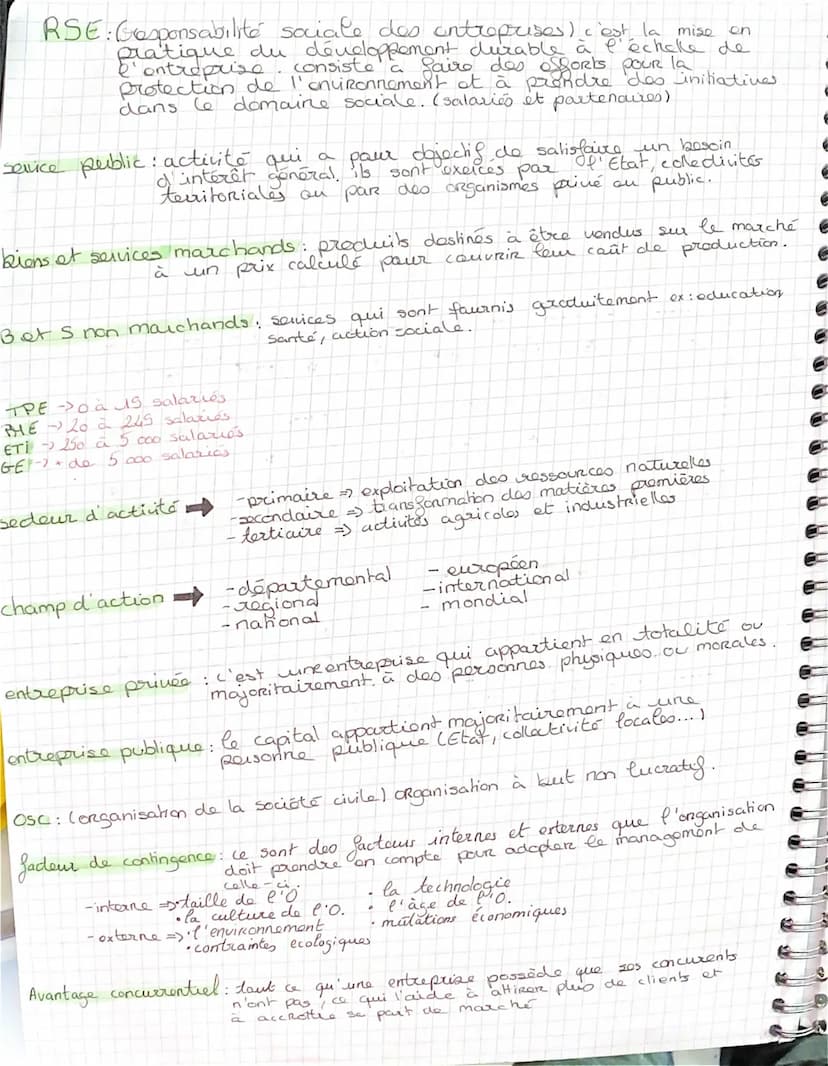 RSE: (responsabilité sociale des entreprises) c'est la mise en
pratique du développement durable à l'échelle de
l'entreprise. consiste à faire des efforts pour la
protection de l'environnement et à prendre des initiatives
dans le domaine sociale. (salariés et partenaires)
service public : activité qui a pour objectif de satisfaire un besoin
d'intérêt général. ils sont exercés par l'Etat, collectivités
territoriales ou par des organismes privé ou public.
biens et services marchands : produits destinés à être vendus sur le marché
à un prix calculé pour couvrir leur coût de production.
B et S non marchands : services qui sont fournis gratuitement ex : education
santé, action sociale.
TPE -> 0 à 19 salariés
PME -> 20 à 249 salariés
ETI -> 250 à 5 000 salariés
GE -> + de 5 000 salariés
secteur d'activité ➡ - primaire => exploitation des ressources naturelles
- secondaire => transformation des matières premières
- tertiaire => activités agricoles et industrielles
champ d'action ➡ - départemental - européen
- regional - international
- national - mondial
entreprise privée : c'est une entreprise qui appartient en totalité ou
majoritairement à des personnes physiques ou morales.
entreprise publique : le capital appartient majoritairement à une
personne publique (Etat, collectivité locales...)
OSC : (organisation de la société civile) organisation à but non lucratif.
facteur de contingence : ce sont des facteurs internes et externes que l'organisation
doit prendre en compte pour adopter le management de
celle-ci.
- interne => • taille de l'O • la technologie
• la culture de l'O. • l'âge de l'O.
- externe => • l'environnement • mutations économiques
• contraintes ecologiques
Avantage concurrentiel : tout ce qu'une entreprise possède que ses concurents
n'ont pas, ce qui l'aide à attirer plus de clients et
à accroître sa part de marché